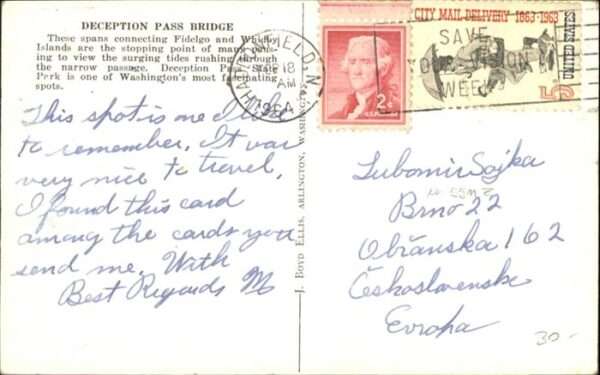 DECEPTION PASS BRIDGE
These spans connecting Fidelgo and Whidby
Islands are the stopping point of many
to view the surging tides rushing through
the narrow passage. Deception Pass State
Park is one of Washington's most fascinating
spots.
This spot is one I like
to remember. It was
very nice to travel.
I found this card
among the cards you
send me. With
Best Regards M
J. BOYD ELLIS, ARLINGTON, WASHINGTON
SEP 18
AM
1964
2¢
CITY MAIL DELIVERY 1863-1963
SAVE
YOUR VISION
WEEK
UNITED STATES
5¢
Lubomir Sojka
Brno 22
Občanska 162
Československe
Evropa
30-